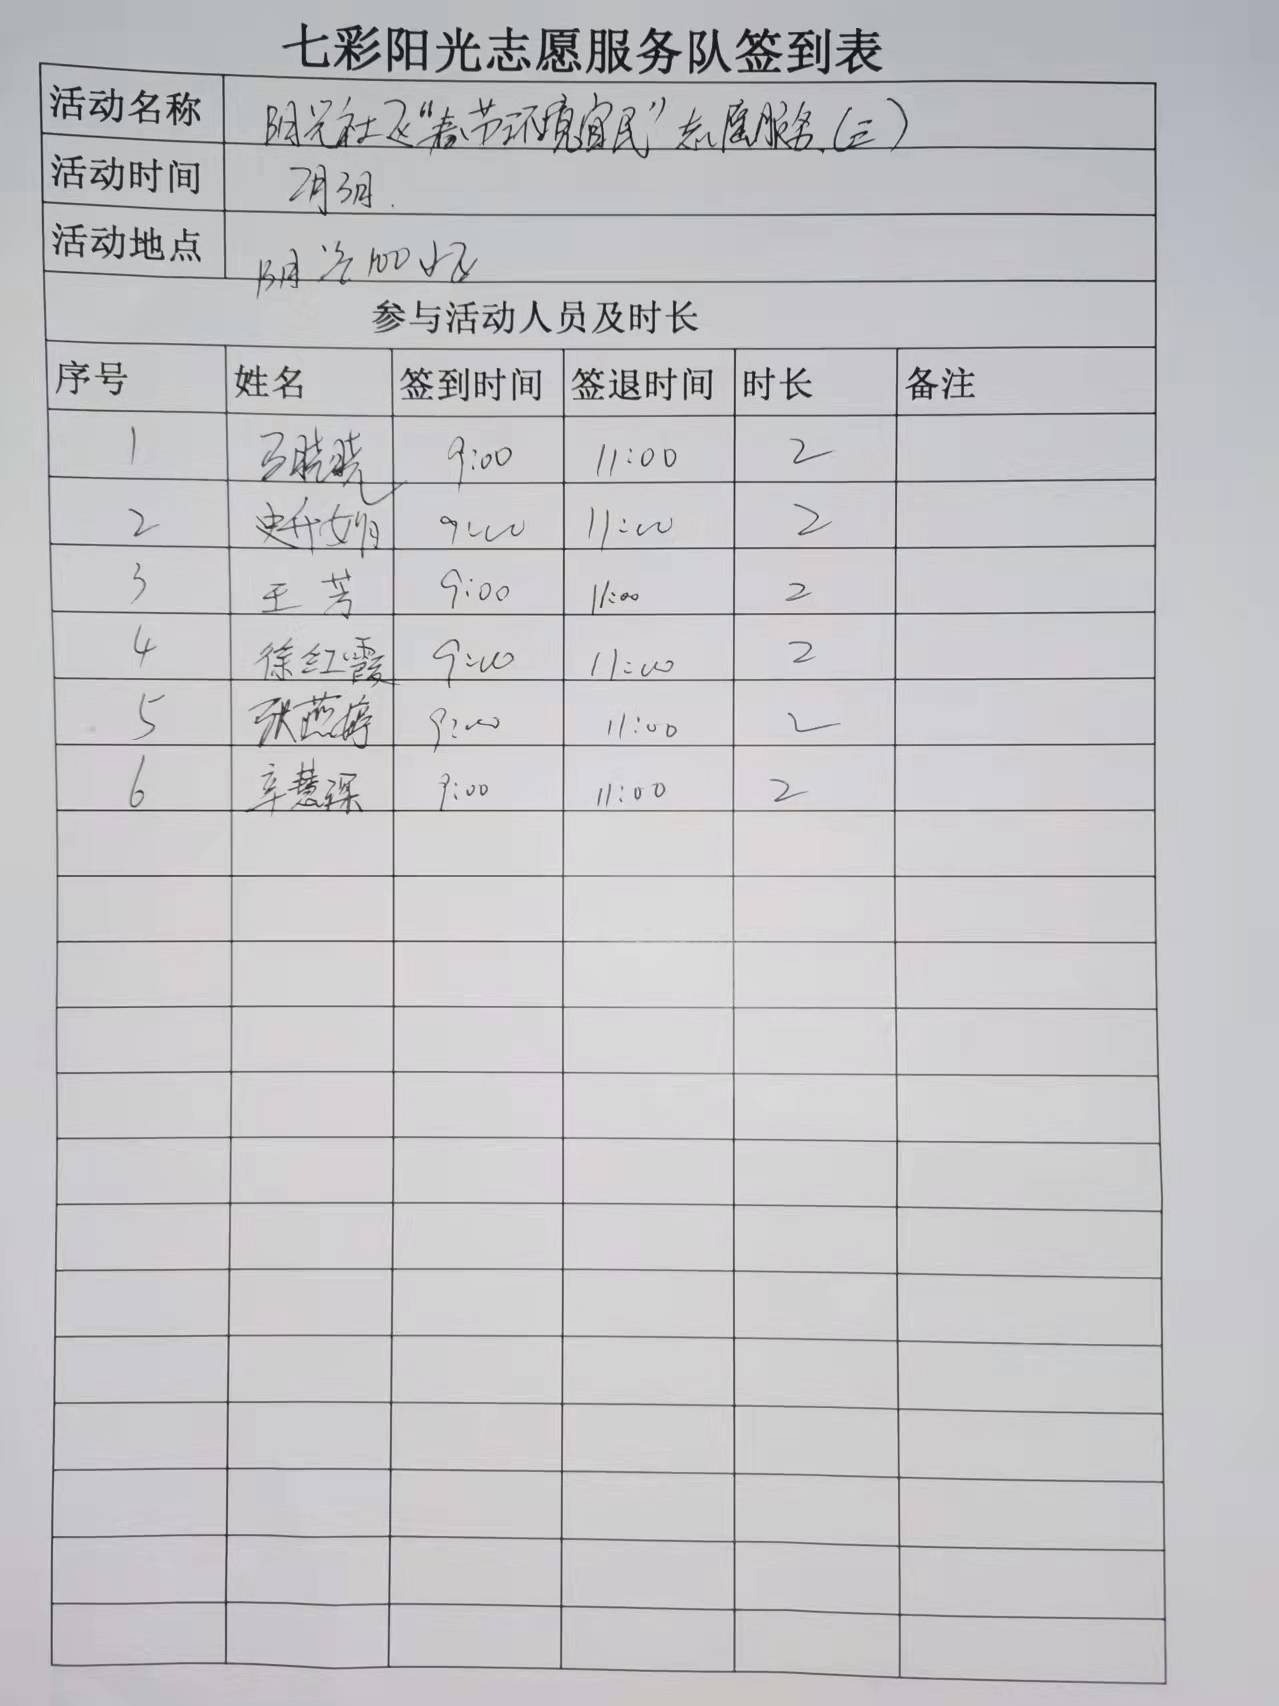 七彩阳光志愿服务队签到表
活动名称 阳光社区“春节环境宜民”志愿服务（三）
活动时间 2月3日.
活动地点 阳光100小区
参与活动人员及时长
序号 姓名 签到时间 签退时间 时长 备注
1 王晓晓 9:00 11:00 2
2 史升娟 9:00 11:00 2
3 王芳 9:00 11:00 2
4 徐红霞 9:00 11:00 2
5 张燕婷 9:00 11:00 2
6 辛慧琛 9:00 11:00 2